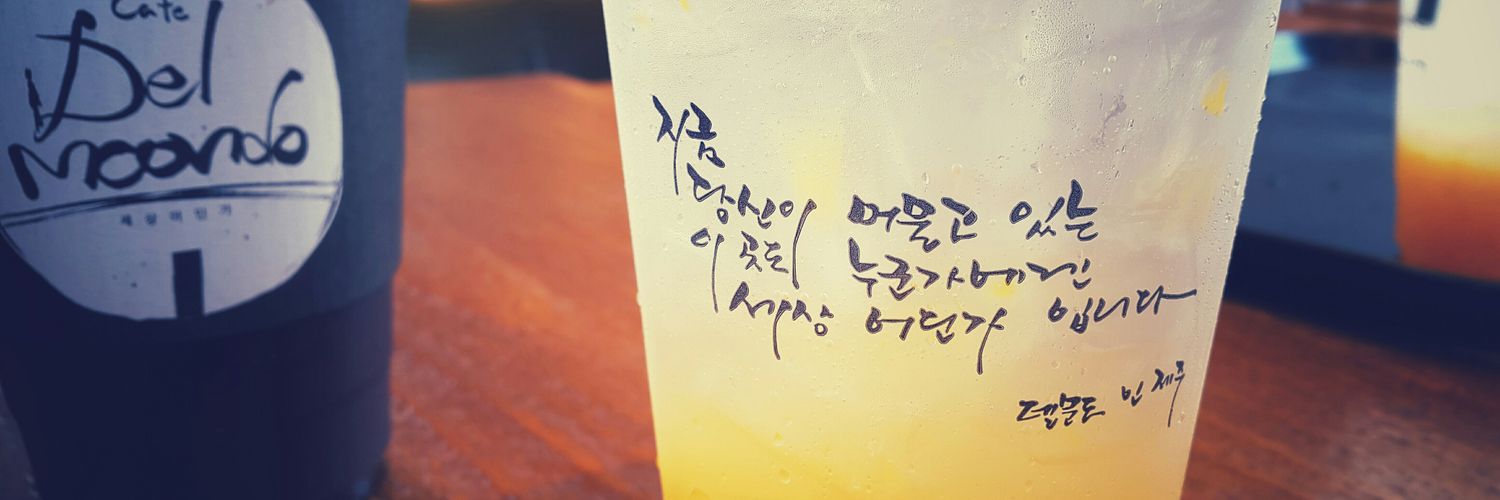 Cafe
Del
moondo
세상어딘가
지금
당신이 머물고 있는
이 곳도 누군가에겐
세상 어딘가 입니다
델문도 인 제주